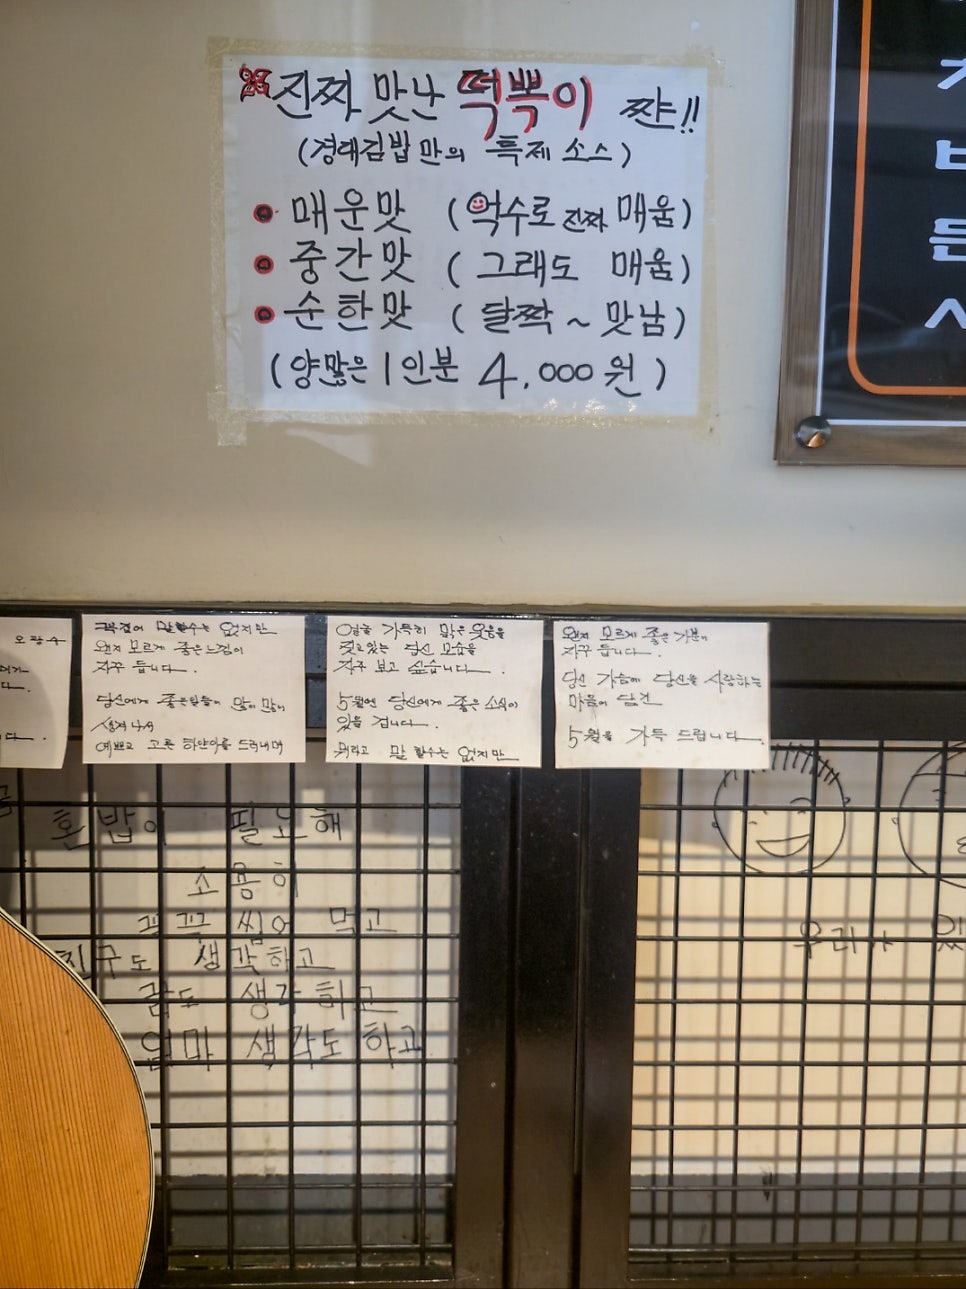 ※진짜 맛난 떡뽁이 쨘!!
(경대김밥만의 특제 소스)
매운맛 (악수로 진짜 매움)
중간맛 (그래도 매움)
순한맛 (달짝~맛남)
(양많은 1인분 4,000원)
오광수
꼭집어 말할수는 없지만
왠지 모르게 좋은 느낌이
자꾸 듭니다.
당신에게 좋은일들이 많이 많이
생겨나서
예쁘고 고른 하얀이를 드러내며
얼굴 가득히 맑은 웃음을
짓고있는 당신 모습을
자꾸 보고 싶습니다.
5월엔 당신에게 좋은 소식이
있을 겁니다.
뭐라고 말 할수는 없지만
왠지 모르게 좋은 기분이
자꾸 듭니다.
당신 가슴에 당신을 사랑하는
마음이 담긴
5월을 가득 드립니다.
혼밥이 필요해
조용히
꼭꼭 씹어 먹고
친구도 생각하고
꿈도 생각하고
엄마 생각도 하고
우리가